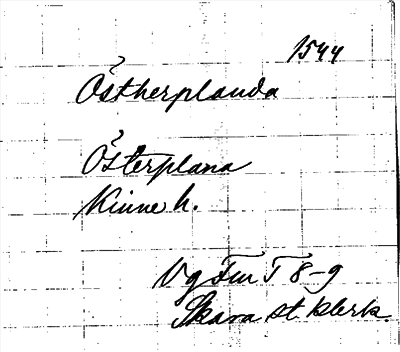 1544
Östherplanda
Österplana
Kinne h.
Vg Fur T 8-9
Skara st. klerk.